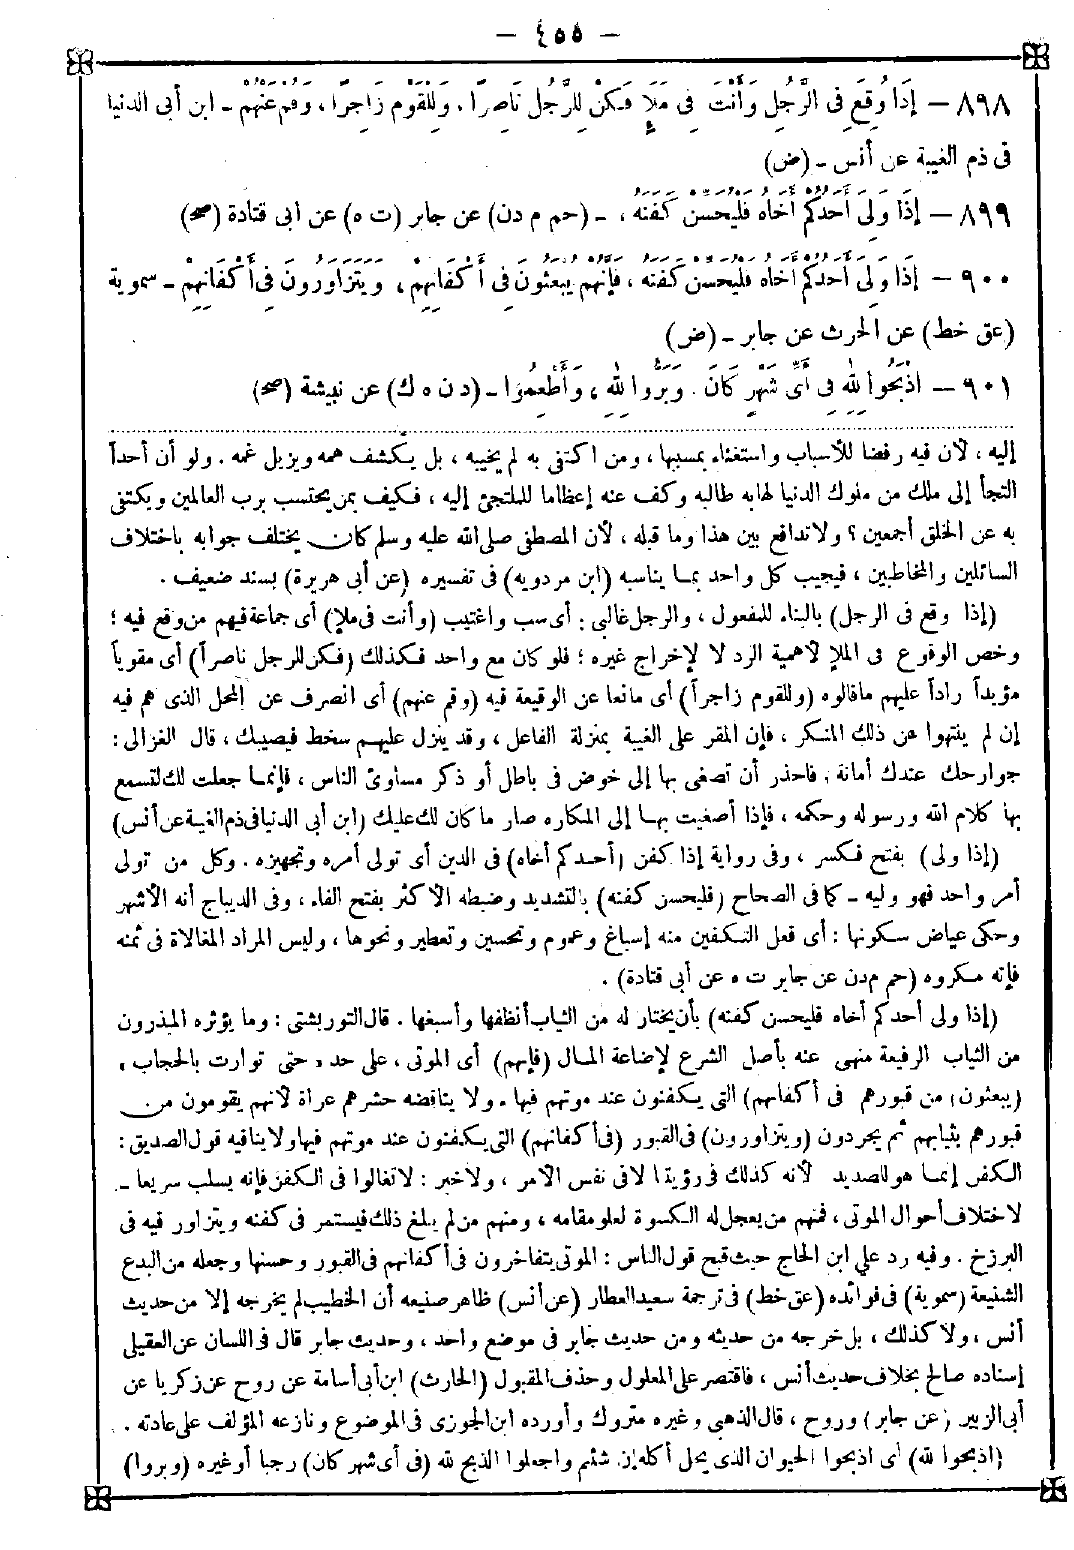 — ٤٥٥ —
٨٩٨ — إِذَا وُقِعَ فِى الرَّجُلِ وَأَنْتَ فِى مَلَإٍ فَكُنْ لِلرَّجُلِ نَاصِرًا ، وَلِلْقَوْمِ زَاجِرًا ، وَقُمْ عَنْهُمْ - ابن أبى الدنيا
فى ذم الغيبة عن أنس - (ض)
٨٩٩ — إِذَا وَلِىَ أَحَدُكُمْ أَخَاهُ فَلْيُحَسِّنْ كَفَنَهُ ، - (حم م دن) عن جابر (ت ه) عن أبى قتادة (صح)
٩٠٠ — إِذَا وَلِىَ أَحَدُكُمْ أَخَاهُ فَلْيُحَسِّنْ كَفَنَهُ ، فَإِنَّهُمْ يُبْعَثُونَ فِى أَكْفَانِهِمْ ، وَيَتَزَاوَرُونَ فِى أَكْفَانِهِمْ - سموية
(عق خط) عن الحرث عن جابر - (ض)
٩٠١ — اذْبَحُوا لِلهِ فِى أَىِّ شَهْرٍ كَانَ ، وَبَرُّوا لِلهِ ، وَأَطْعِمُوا - (د ن ه ك) عن نبيشة (صح)
إليه ، لأن فيه رفضا للأسباب واستغناء بمسببها ، ومن اكتفى به لم يخيبه ، بل يكشف همه ويزيل غمه . ولو أن أحداً
التجأ إلى ملك من ملوك الدنيا لهابه طالبه وكف عنه إعظاما للملتجئ إليه ، فكيف بمن يحتسب برب العالمين ويكتفى
به عن الخلق أجمعين ؟ ولا تدافع بين هذا وما قبله ، لأن المصطفى صلى الله عليه وسلم كان يختلف جوابه باختلاف
السائلين والمخاطبين ، فيجيب كل واحد بما يناسبه (ابن مردويه) فى تفسيره (عن أبى هريرة) بسند ضعيف .
(إذا وقع فى الرجل) بالبناء للمفعول ، والرجل غالبى : أى سب واغتيب (وأنت فى ملإ) أى جماعة فيهم من وقع فيه ؛
وخص الوقوع فى الملإ لأهمية الرد لا لإخراج غيره ؛ فلو كان مع واحد فكذلك (فكن للرجل ناصراً) أى مقوياً
مؤيداً راداً عليهم ماقالوه (وللقوم زاجراً) أى مانعا عن الوقيعة فيه (وقم عنهم) أى انصرف عن المحل الذى هم فيه
إن لم ينتهوا عن ذلك المنكر ، فإن المقر على الغيبة بمنزلة الفاعل ، وقد ينزل عليهم سخط فيصيبك ، قال الغزالى :
جوارحك عندك أمانة ، فاحذر أن تصغى بها إلى خوض فى باطل أو ذكر مساوئ الناس ، فإنما جعلت لك لتسمع
بها كلام الله ورسوله وحكمه ، فإذا أصغيت بها إلى المكاره صار ما كان لك عليك (ابن أبى الدنيا فى ذم الغيبة عن أنس)
(إذا ولى) بفتح فكسر ، وفى رواية إذا كفن (أحدكم أخاه) فى الدين أى تولى أمره وتجهيزه . وكل من تولى
أمر واحد فهو وليه - كما فى الصحاح (فليحسن كفنه) بالتشديد وضبطه الأكثر بفتح الفاء ، وفى الديباج أنه الأشهر
وحكى عياض سكونها : أى فعل التكفين منه إسباغ وعموم وتحسين وتعطير ونحوها ، وليس المراد المغالاة فى ثمنه
فإنه مكروه (حم م دن عن جابر ت ه عن أبى قتادة) .
(إذا ولى أحدكم أخاه فليحسن كفنه) بأن يختار له من الثياب أنظفها وأسبغها . قال التوربشتى : وما يؤثره المبذرون
من الثياب الرفيعة منهى عنه بأصل الشرع لإضاعة المال (فإنهم) أى الموتى ، على حد « حتى توارت بالحجاب »
(يبعثون) من قبورهم فى أكفانهم) التى يكفنون عند موتهم فيها . ولا يناقضه حشرهم عراة لأنهم يقومون من
قبورهم بثيابهم ثم يجردون (ويتزاورون) فى القبور (فى أكفانهم) التى يكفنون عند موتهم فيها ولا ينافيه قول الصديق :
الكفن إنما هو للصديد لأنه كذلك فى رؤيتنا لا فى نفس الأمر ، ولا خبر : لا تغالوا فى الكفن فإنه يسلب سريعا -
لاختلاف أحوال الموتى ، فمنهم من يعجل له الكسوة لعلو مقامه ، ومنهم من لم يبلغ ذلك فيستمر فى كفنه ويتزاور فيه فى
البرزخ . وفيه رد على ابن الحاج حيث قبح قول الناس : الموتى يتفاخرون فى أكفانهم فى القبور وحسنها وجعله من البدع
الشنيعة (سموية) فى فوائده (عق خط) فى ترجمة سعيد العطار (عن أنس) ظاهر صنيعه أن الخطيب لم يخرجه إلا من حديث
أنس ، ولا كذلك ، بل خرجه من حديثه ومن حديث جابر فى موضع واحد ، وحديث جابر قال فى اللسان عن العقيلى
إسناده صالح بخلاف حديث أنس ، فاقتصر على المعلول وحذف المقبول (الحارث) ابن أبى أسامة عن روح عن زكريا عن
أبى الزبير (عن جابر) وروح ، قال الذهبى وغيره متروك وأورده ابن الجوزى فى الموضوع ونازعه المؤلف على عادته .
(اذبحوا لله) أى اذبحوا الحيوان الذى يحل أكله إن شئتم واجعلوا الذبح لله (فى أى شهر كان) رجبا أو غيره (وبروا)